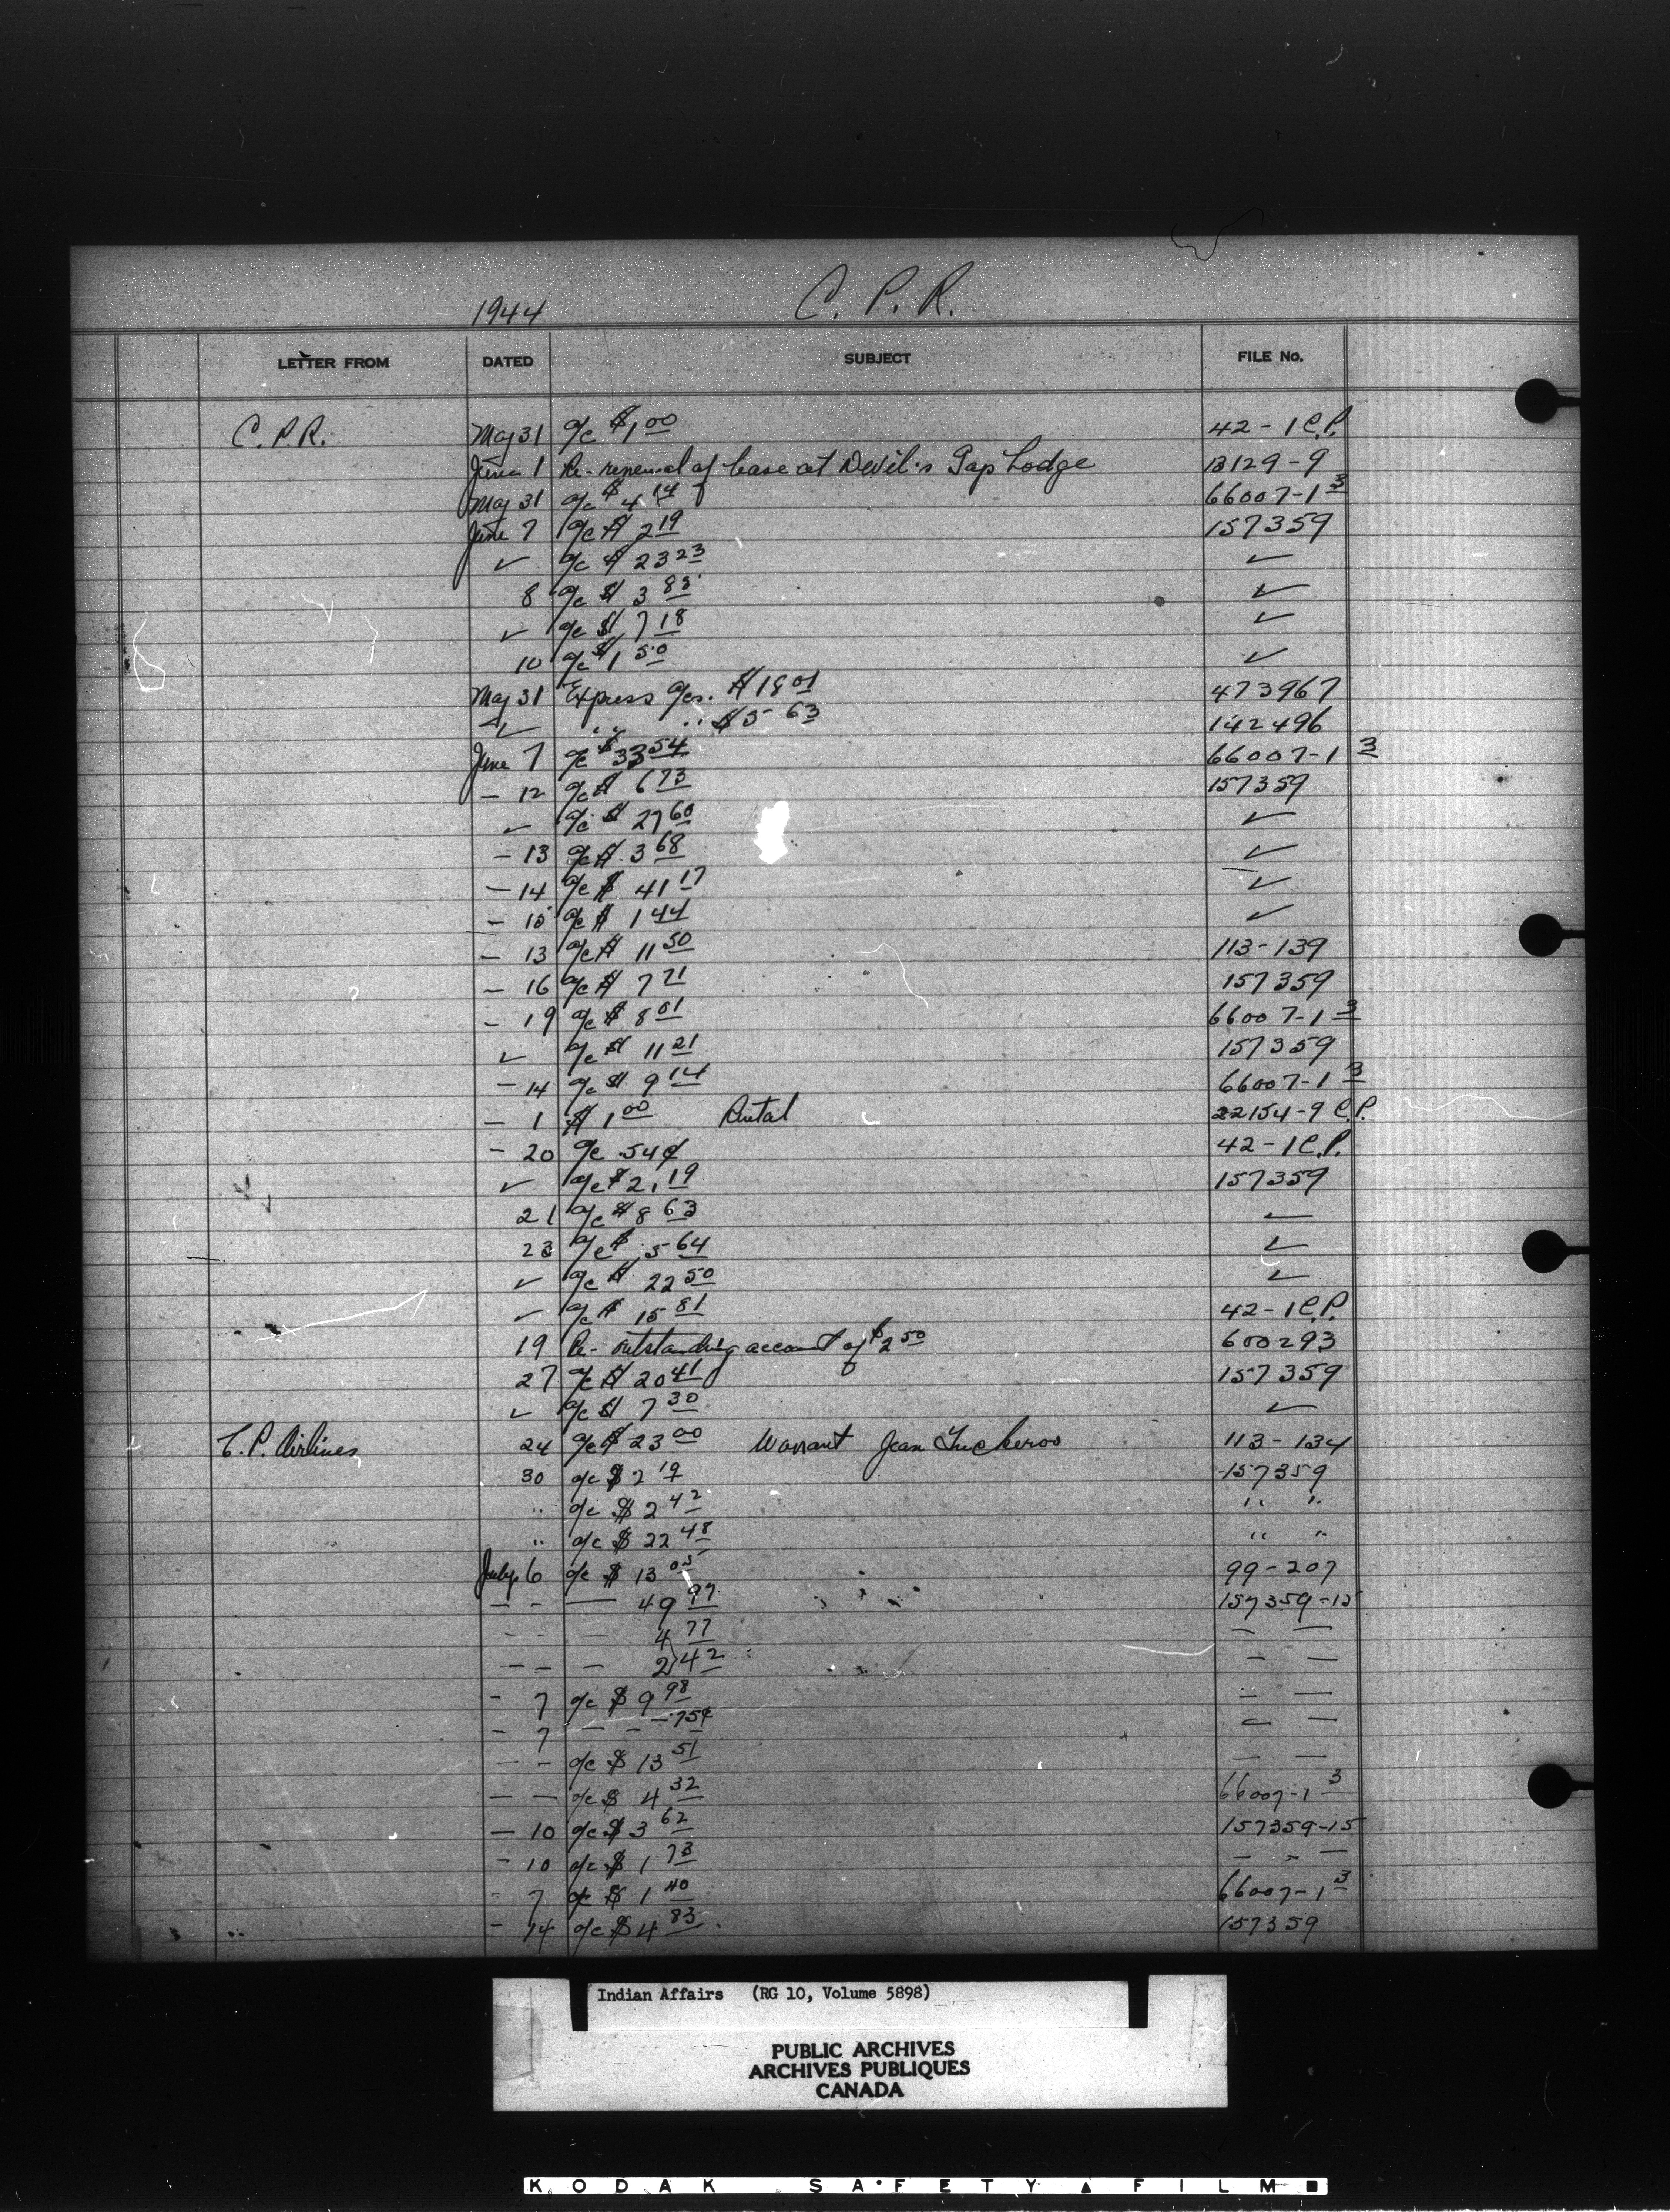 1944 C. P. R.
LETTER FROM DATED SUBJECT FILE No.
C.P.R. May 31 a/c $1.00 42-1 C.P.
June 1 Re- renewal of lease at Devil's Gap Lodge 13129-9
May 31 a/c $4 14 66007-1 3
June 7 a/c $ 2 19 157359
✓ a/c $ 23 23 ✓
8 a/c $ 3 85 ✓
✓ a/c $ 7 18 ✓
10 a/c $1 50 ✓
May 31 Express a/cs. $18 01 473967
✓ " " $5 63 142496
June 7 a/c $33 54 66007-1 3
- 12 a/c $ 6 73 157359
✓ a/c $ 27 60 ✓
- 13 a/c $ 3 68 ✓
- 14 a/c $ 41 17 ✓
- 15 a/c $ 1 44 ✓
- 13 a/c $ 11 50 113-139
- 16 a/c $ 7 71 157359
- 19 a/c $ 8 01 66007-1 3
✓ a/c $ 11 21 157359
- 14 a/c $ 9 14 66007-1 3
- 1 $ 1 00 Rental 22154-9 C.P.
- 20 a/c .54¢ 42-1 C.P.
✓ a/c $2.19 157359
21 a/c $8 63 ✓
23 a/c $ 5 64 ✓
✓ a/c $ 22 50 ✓
✓ a/c $ 15 81 42-1 C.P.
19 Re- outstanding account of $2 50 600293
27 a/c $ 20 41 157359
✓ a/c $ 7 30 ✓
C.P. Airlines 24 a/c $ 23 00 Warrant Jean 113-134
30 a/c $ 2 19 157359
" a/c $ 2 42 " "
" a/c $ 22 48 " "
July 6 a/c $ 13 05 99-207
- - — 49 97 157359-15
- - — 4 77 — —
- - — 2 42 — —
- 7 a/c $ 9 98 — —
- 7 — - - .75¢ — —
- - a/c $ 13 51 — —
- - a/c $ 4 32 66007-1 3
- 10 a/c $ 3 62 157359-15
- 10 a/c $ 1 73 - - -
- 7 a/c $ 1 40 66007-1 3
- 14 a/c $ 4 83 157359
Indian Affairs (RG 10, Volume 5898)
PUBLIC ARCHIVES
ARCHIVES PUBLIQUES
CANADA
KODAK SAFETY FILM